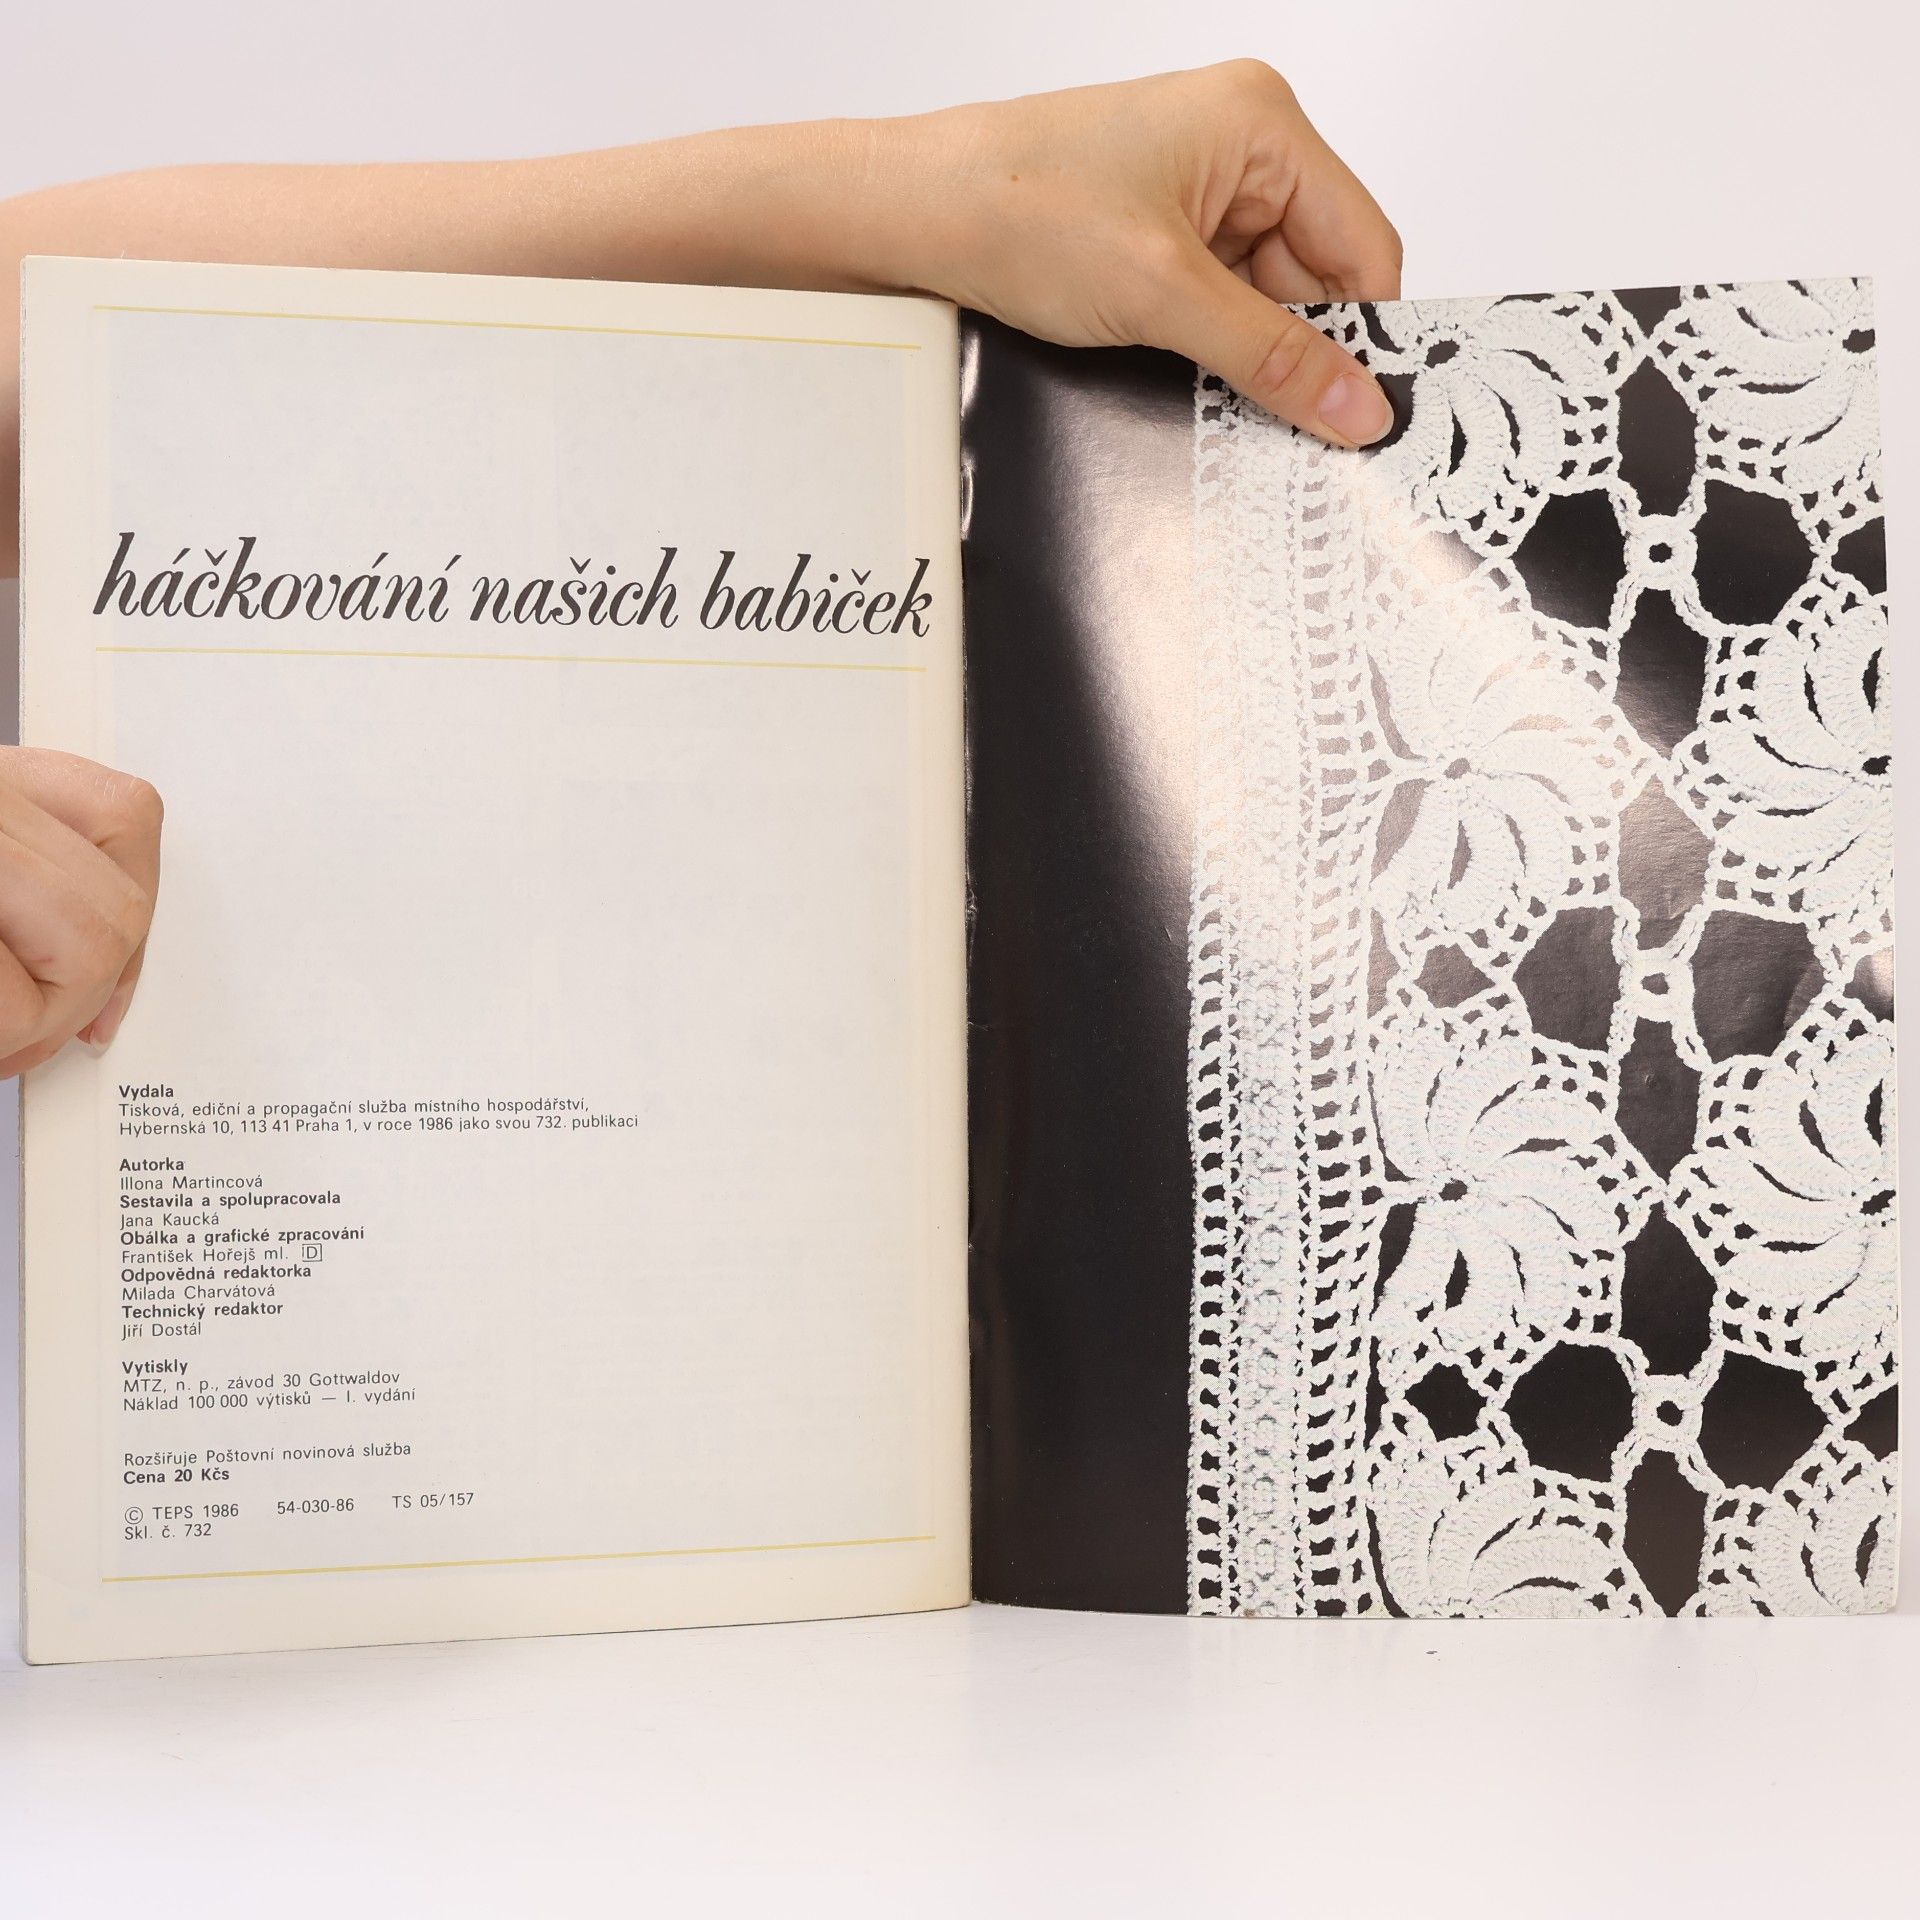 háčkování našich babiček
Vydala
Tisková, ediční a propagační služba místního hospodářství,
Hybernská 10, 113 41 Praha 1, v roce 1986 jako svou 732. publikaci
Autorka
Illona Martincová
Sestavila a spolupracovala
Jana Kaucká
Obálka a grafické zpracování
František Hořejš ml. D
Odpovědná redaktorka
Milada Charvátová
Technický redaktor
Jiří Dostál
Vytiskly
MTZ, n. p., závod 30 Gottwaldov
Náklad 100 000 výtisků — I. vydání
Rozšiřuje Poštovní novinová služba
Cena 20 Kčs
© TEPS 1986 54-030-86 TS 05/157
Skl. č. 732